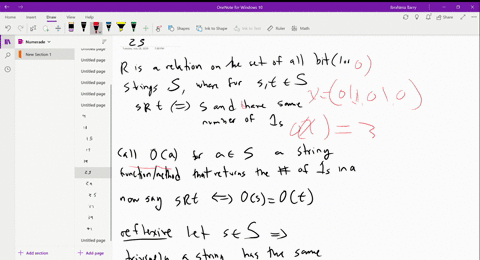 OneNote for Windows 10
Ibrahima Barry
Home
Insert
Draw
View
Help
Class Notebook
Shapes
Ink to Shape
Ink to Text
Ruler
Math
Numerade
New Section 1
Untitled page
Untitled page
Untitled page
Untitled page
Untitled page
23
Untitled page
Add section
Add page
23
R is a relation on the set of all bit (1 or 0)
strings S, where for s, t ∈ S
sRt ⟺ s and t have same
number of 1s
x = (0 1 1, 0 1, 0)
O(x) = 3
Call O(a) for a ∈ S a string
function/method that returns the # of 1s in a
now say sRt ⟺ O(s) = O(t)
reflexive let s ∈ S ⟹
trivially a string has the same